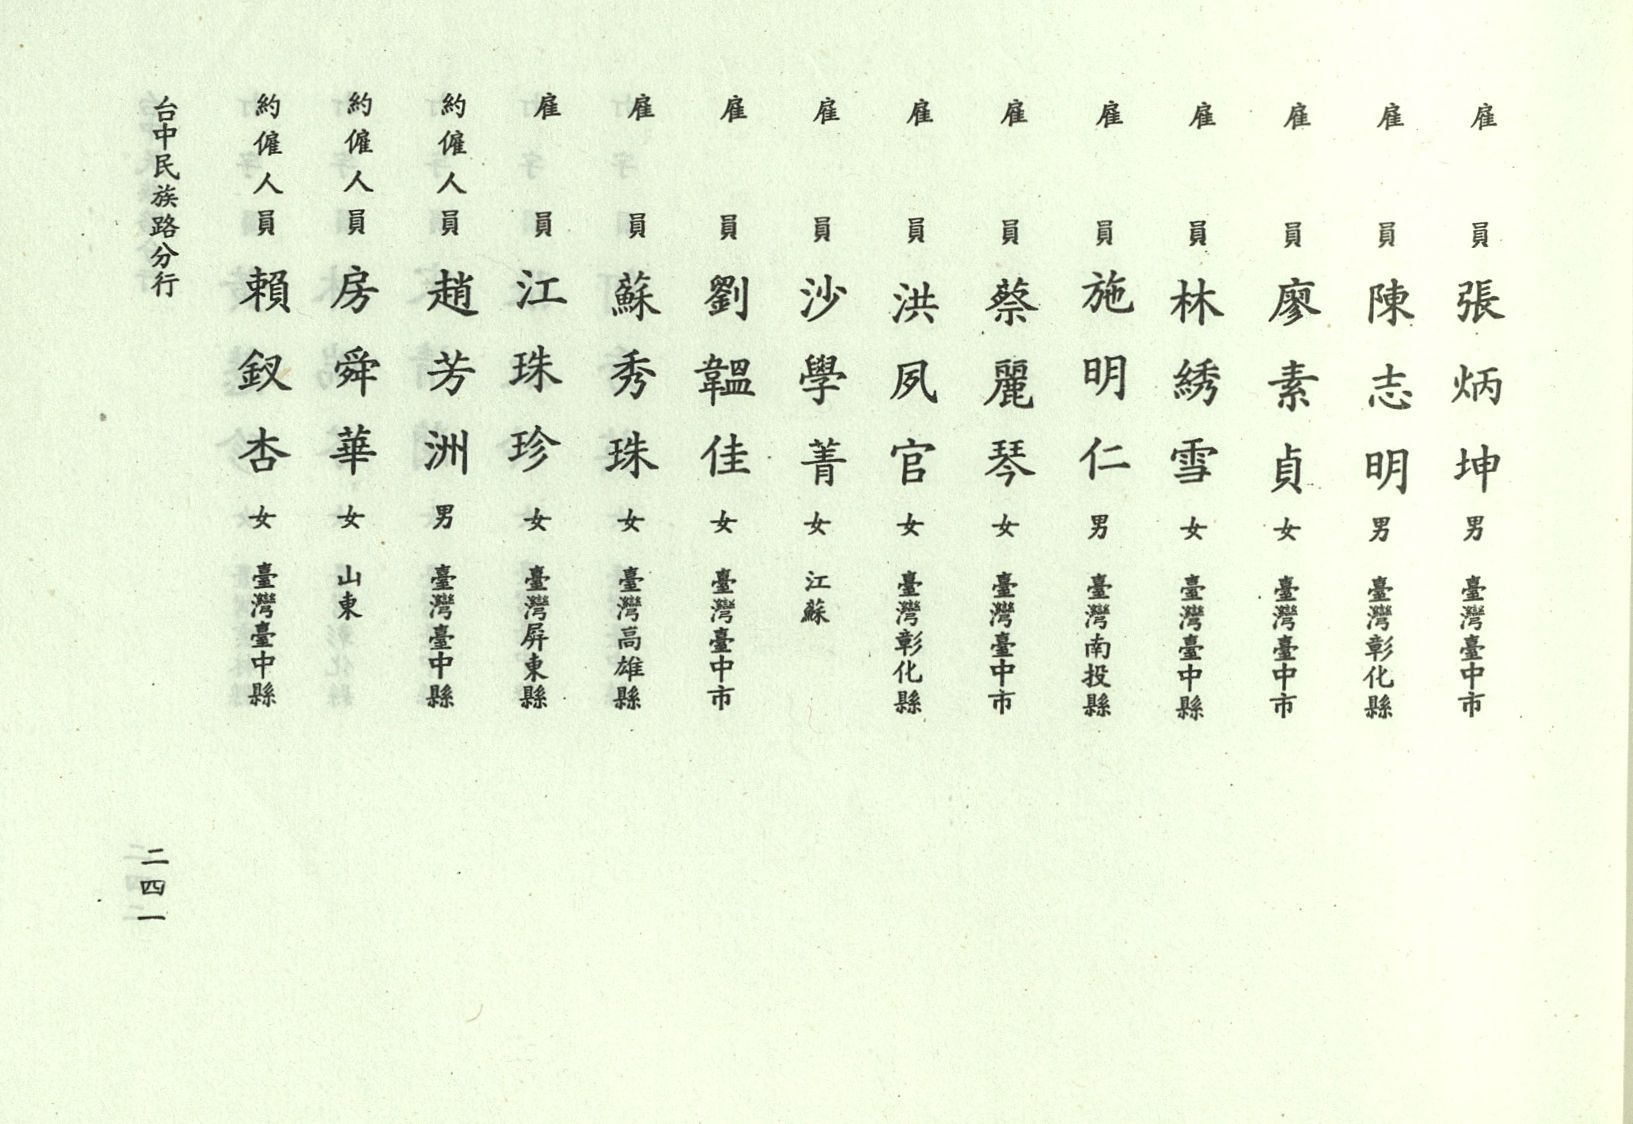 雇員 張炳坤 男 臺灣臺中市
雇員 陳志明 男 臺灣彰化縣
雇員 廖素貞 女 臺灣臺中市
雇員 林綉雪 女 臺灣臺中縣
雇員 施明仁 男 臺灣南投縣
雇員 蔡麗琴 女 臺灣臺中市
雇員 洪夙官 女 臺灣彰化縣
雇員 沙學菁 女 江蘇
雇員 劉韞佳 女 臺灣臺中市
雇員 蘇秀珠 女 臺灣高雄縣
雇員 江珠珍 女 臺灣屏東縣
約僱人員 趙芳洲 男 臺灣臺中縣
約僱人員 房舜華 女 山東
約僱人員 賴釵杏 女 臺灣臺中縣
台中民族路分行
二四一